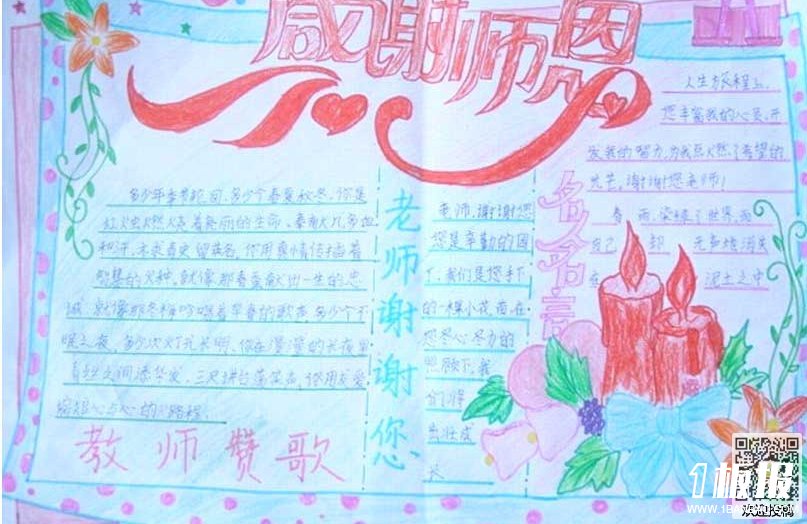 感谢师恩
多少年季节轮回,多少个春夏秋冬,你是
红火虫燃烧着美丽的生命。奉献
你用真情传播着
智慧的火种。就像那春蚕献出一生的忠
诚,就像那冬梅吟唱着早春的歌声,多少个不
眠之夜,多少次灯光长明,你在漫漫的长夜里
你用友爱
缩短心与心的路程
教师赞歌
老师谢谢您
老师,谢谢您
您是辛勤的园
丁,我们是您手下
的一棵小花苗,在
您尽心尽力的
照顾下,我
们将
茁壮成
长
名人名言
人生旅程上,
您丰富我的心灵,开
发我的智力,为我点燃了希望的
光芒,谢谢您老师!
春雨,染绿了世界,而
自己却无声地消失
在泥土之中
1板报
WWW.1BANBAO.COM
欢迎投稿